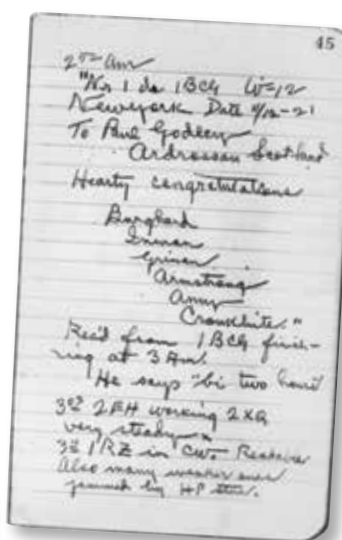 45
2 52 am
"Nr 1 de 1BCG W=12
Newyork Date 11/12-21
To Paul Godley
Ardrossan Scotland
Hearty congratulations
Burghard
Inman
Grinan
Armstrong
Amy
Cronkhite."
Rec'd from 1BCG finish-
ing at 3 Am.
He says
2FH working 2XQ
very steady
1RZ in CW.
Also many weaker ones
jammed by HP